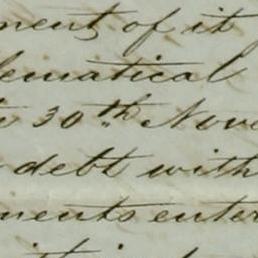 ment of it
lematical
30th Nove
debt with
ments enter